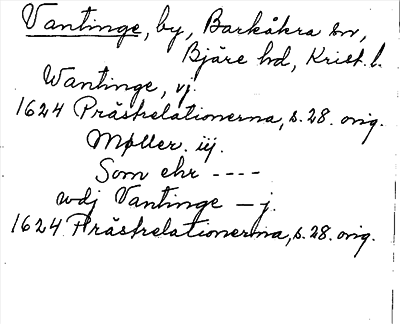 Vantinge, by, Barkåkra sn,
Bjäre hd, Krist. l.
Wantinge, vj.
1624 Prästrelationerna, s. 28. orig.
Møller. iij.
Som ehr ----
wdj Vantinge – j.
1624 Prästrelationerna, s. 28. orig.